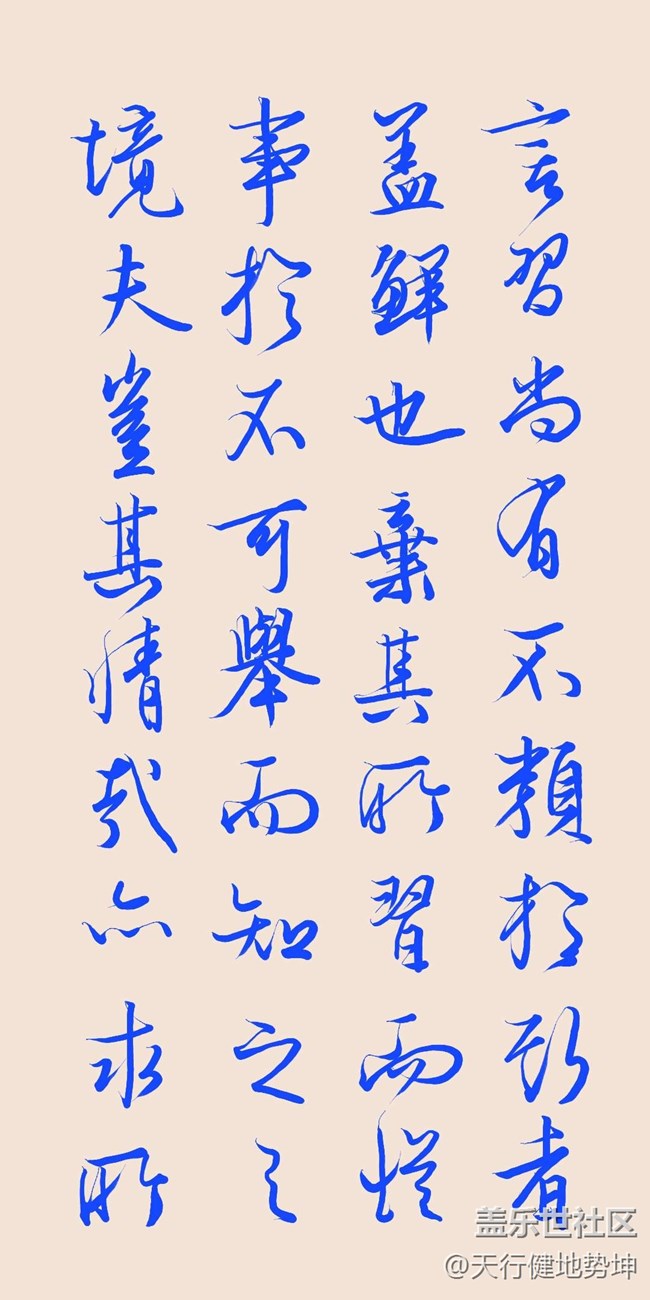 言習尚有不類於斯者
蓋鮮也棄其所習而從
事於不可舉而知之之
境夫豈其情哉亦求所
盖乐世社区
@天行健地势坤